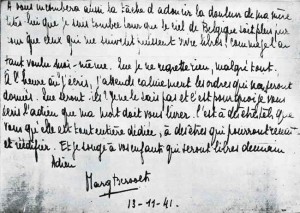 A vous incombera ainsi la tâche d'adoucir la douleur de ma mère
que je suis tombé pour que le ciel de Belgique soit plus pur
pour que ceux qui me suivent puissent vivre libres comme je l'ai
tant voulu moi-même. Que je ne regrette rien, malgré tout.
A l'heure où j'écris, j'attends calmement les ordres qui me seront
donnés. Que seront-ils? Je ne le sais pas et c'est pourquoi je vous
écris l'adieu que ma mort doit vous livrer. C'est à cet
vous qu'elle est toute entière dédiée, à des êtres qui pourront
et réédifier. Et je songe à vos enfants qui seront libres demain
Adieu
13-11-41.